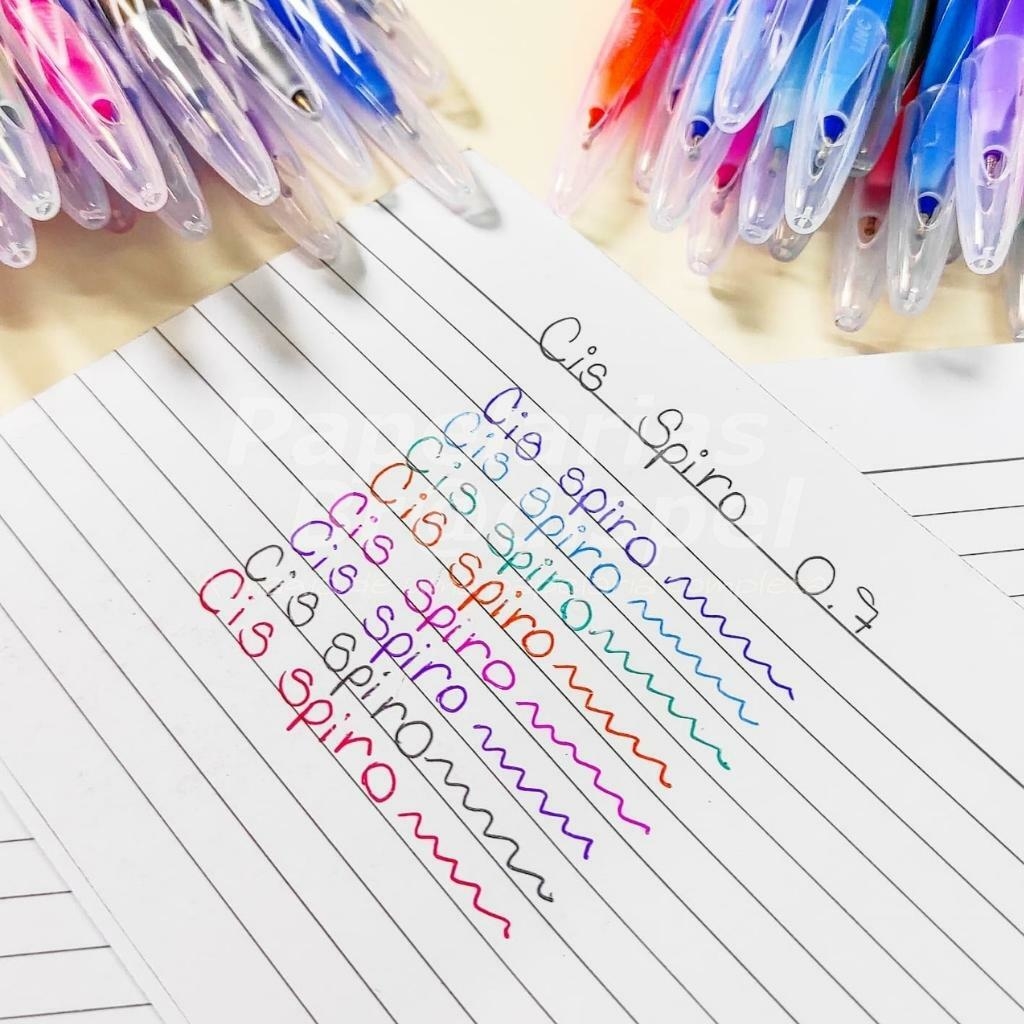 Cis Spiro 0.7
Cis spiro
Cis spiro
Cis spiro
Cis spiro
Cis spiro
Cis spiro
Cis spiro
Cis spiro
LINC